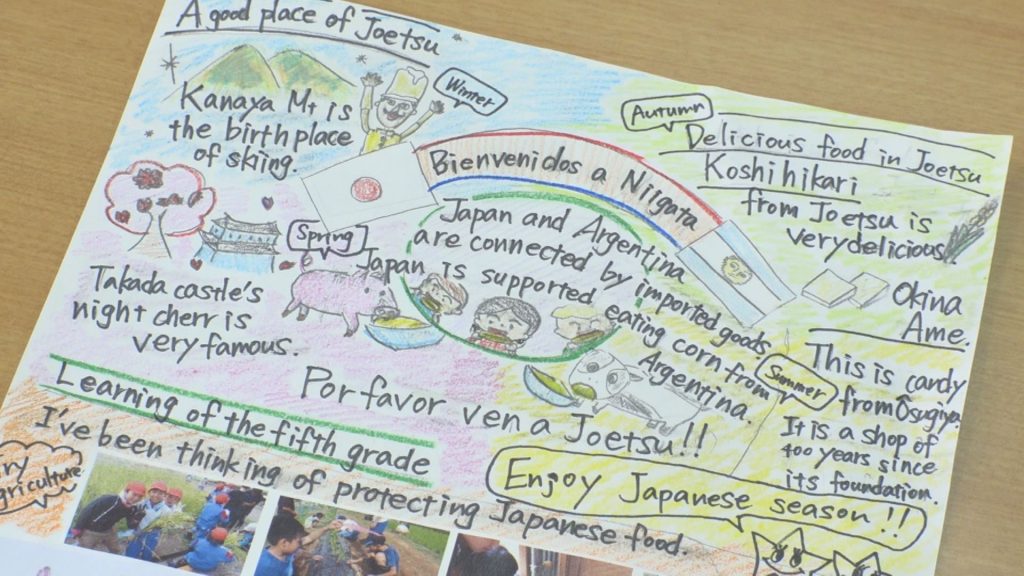 A good place of Joetsu
Winter
Kanaya Mt is
the birthplace
of skiing.
Bienvenidos a Niigata
Autumn
Delicious food in Joetsu
Koshihikari
from Joetsu is
very delicious!
Okina
Ame.
This is candy
from Ōsugiya.
It is a shop of
400 years since
its foundation.
Spring
Takada castle's
night cherr is
very famous.
Japan and Argentina
are connected by imported goods
Japan is supported eating corn from
Argentina.
Summer
Por favor ven a Joetsu!!
Enjoy Japanese season!!
Learning of the fifth grade
I've been thinking of protecting Japanese food.
agriculture